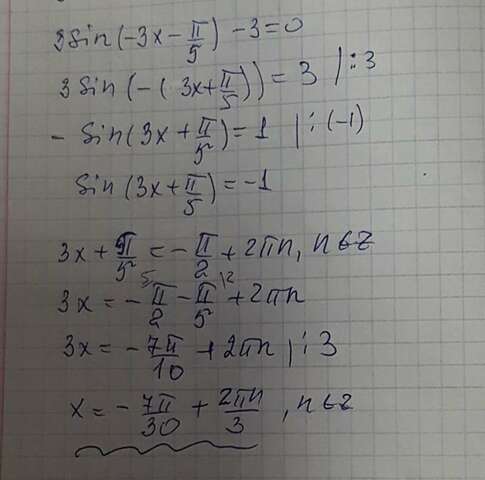 3 sin (-3x - π/5) - 3 = 0
3 sin (-(3x + π/5)) = 3 | : 3
- sin (3x + π/5) = 1 | : (-1)
sin (3x + π/5) = -1
3x + π/5 = - π/2 + 2πn, n ∈ Z
3x = - π/2 - π/5 + 2πn
3x = - 7π/10 + 2πn | : 3
x = - 7π/30 + 2πn/3, n ∈ Z